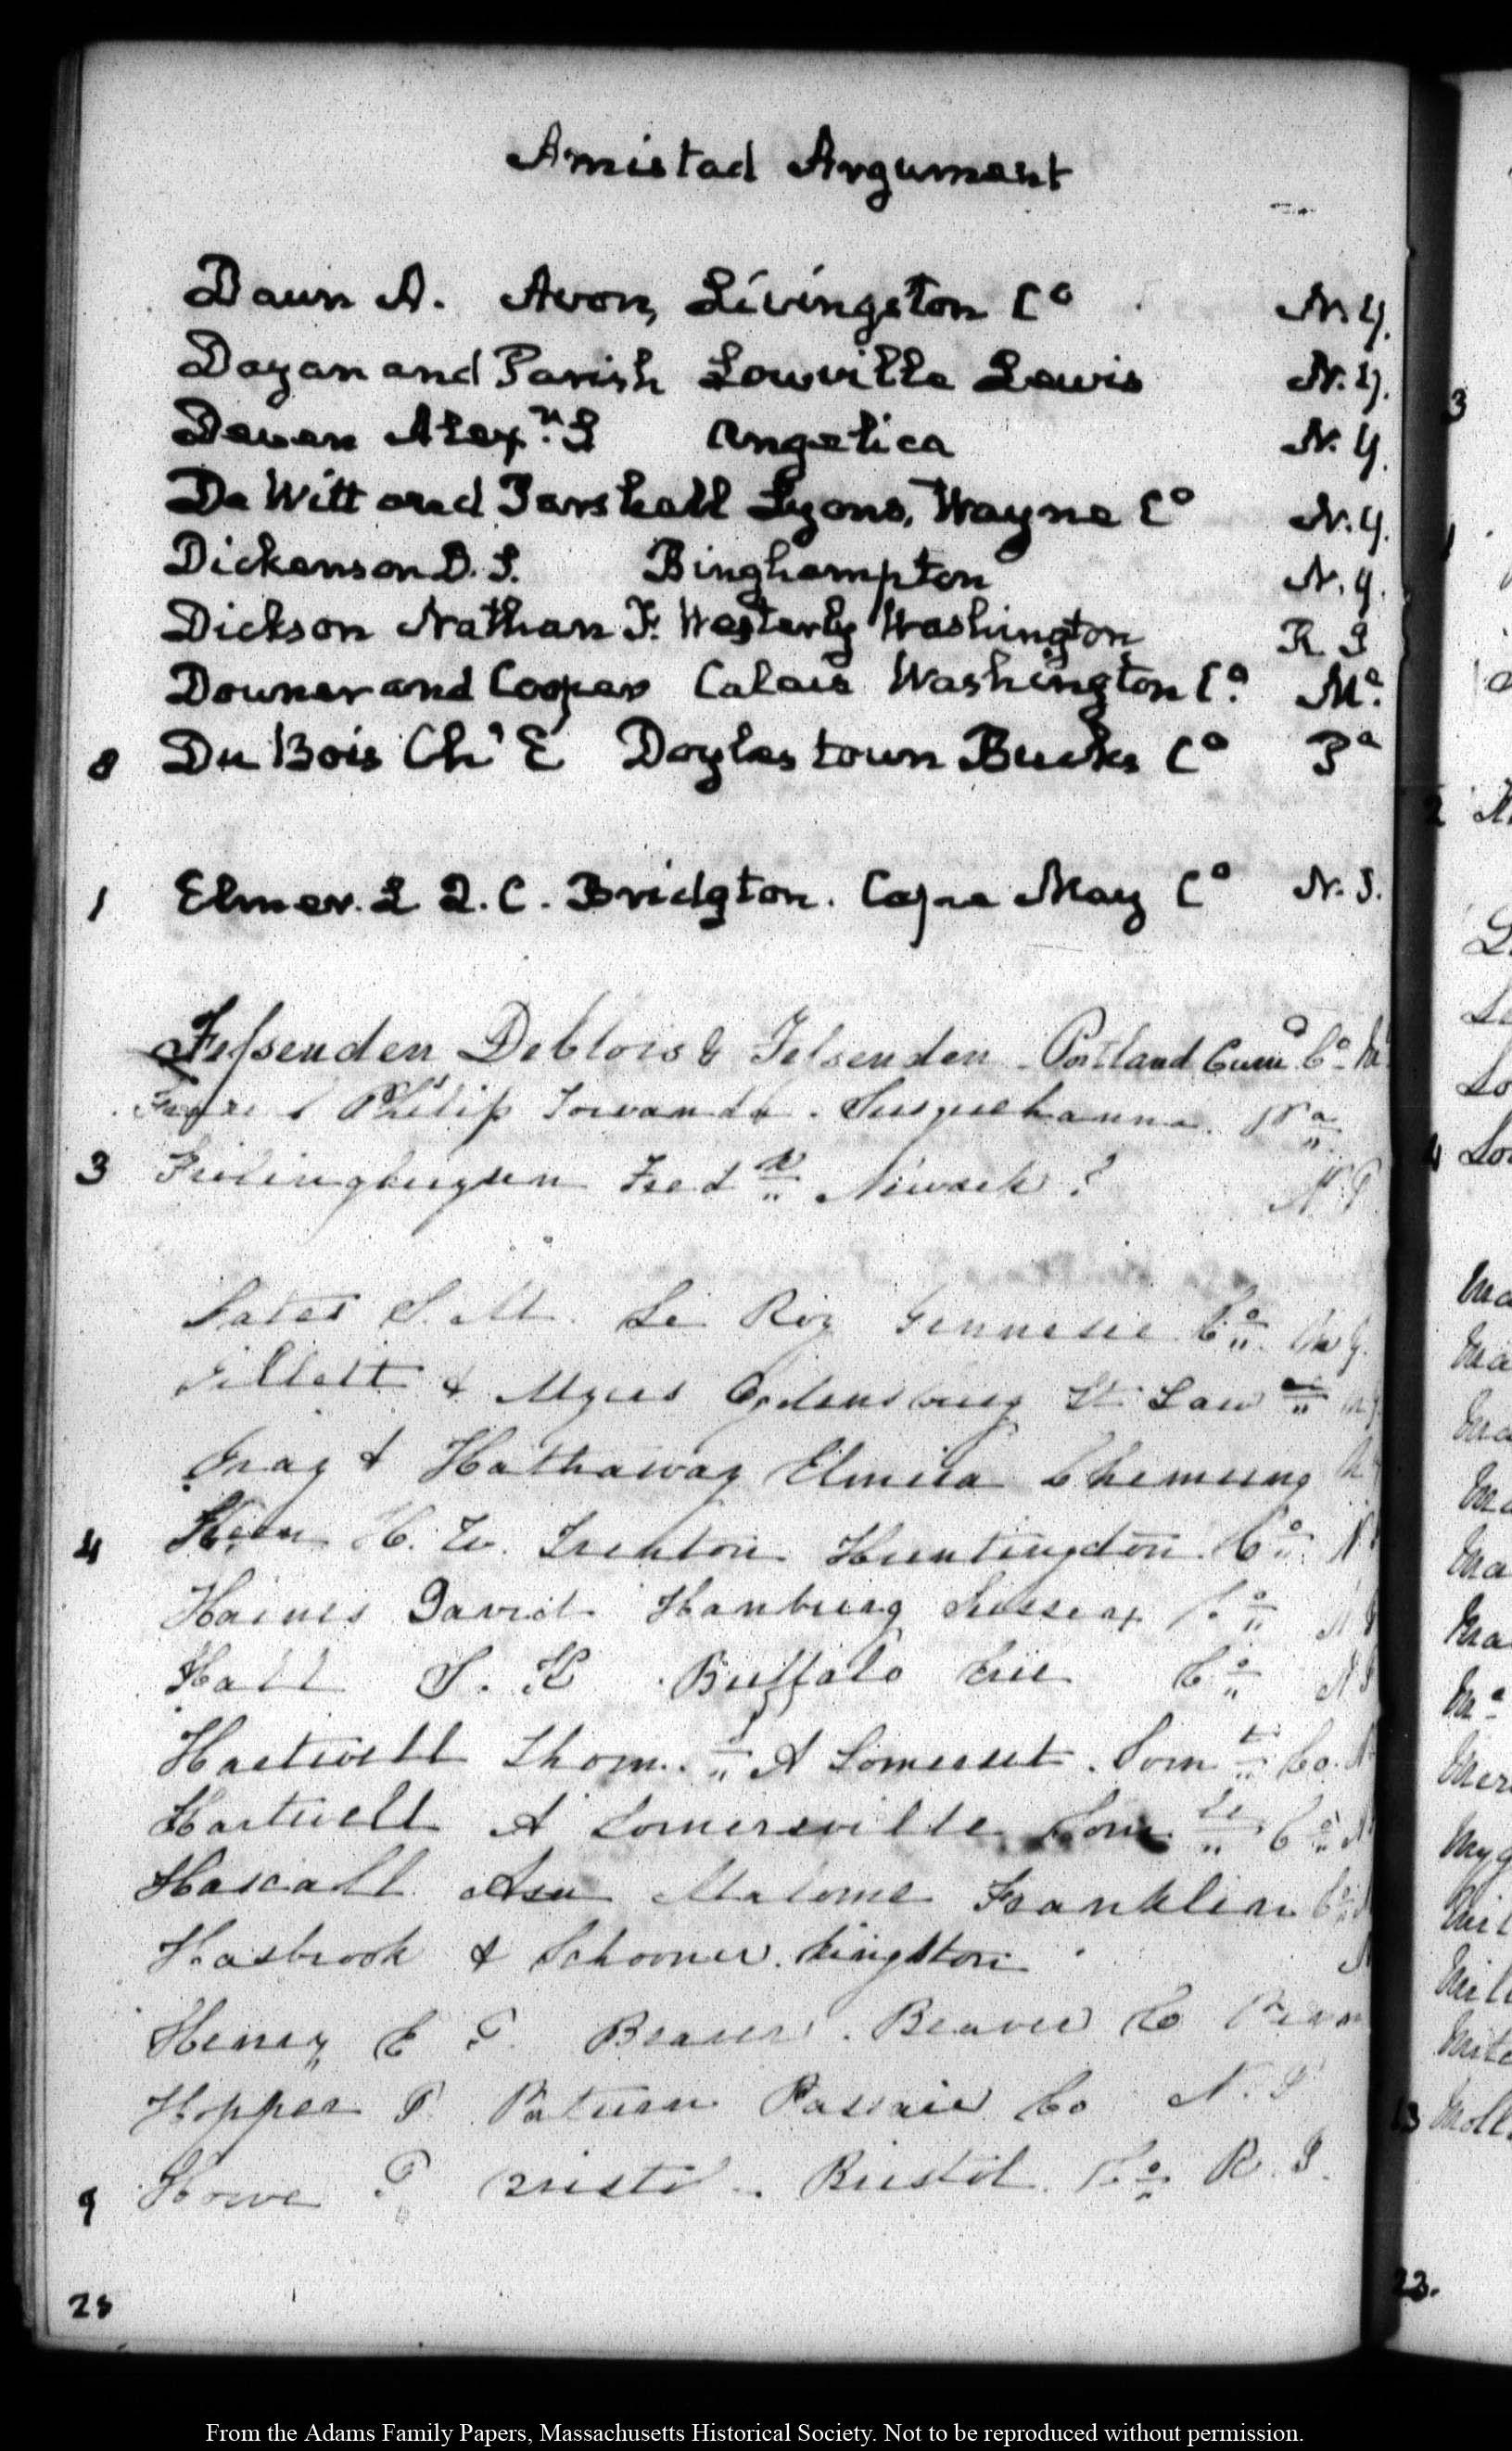 Amistad Argument
Daun A. Avon, Livingston Co N.Y.
Dayan and Parish Lowville Lewis N.Y.
Deven Alexn. S Angelica N.Y.
De Witt and Parshall Lyons, Wayne Co N.Y.
Dickenson D. S. Binghampton N.Y.
Dickson Nathan F. Westerly Washington R I
Downer and Cooper Calais Washington Co. Me.
8 Du Bois Chs E Doylestown Bucks Co Pa
1 Elmer. L Q. C. Bridgton. Cape May Co N.J.
Fessenden Deblois & Fessenden Portland Cumd Co
Philip Towanda. Susquehanna. Pa
3 Fredk Newark? N J
Gates S. M. Le Roy Gennesee Co. N Y.
Gillett & Myers Ogdensburg St Law
Gray & Hathaway Elmira Chemung
4 H. W. Trenton Huntingdon. Co.
Haines David Hamburg Sussex Co
Hall S. K Buffalo Erie Co
Hartwell Thom. A Somerset. Som Co.
Hartwell A Somersville Som Co
Hascall Asa Malone Franklin Co
Hasbrook & Schooner. Kingston
Henry E T. Beaver. Beaver Co
Hopper P. Paturson Passaic Co N. J
9 Howe T Bristol. Co R. I.
28
3
2
4
13
23.
From the Adams Family Papers, Massachusetts Historical Society. Not to be reproduced without permission.